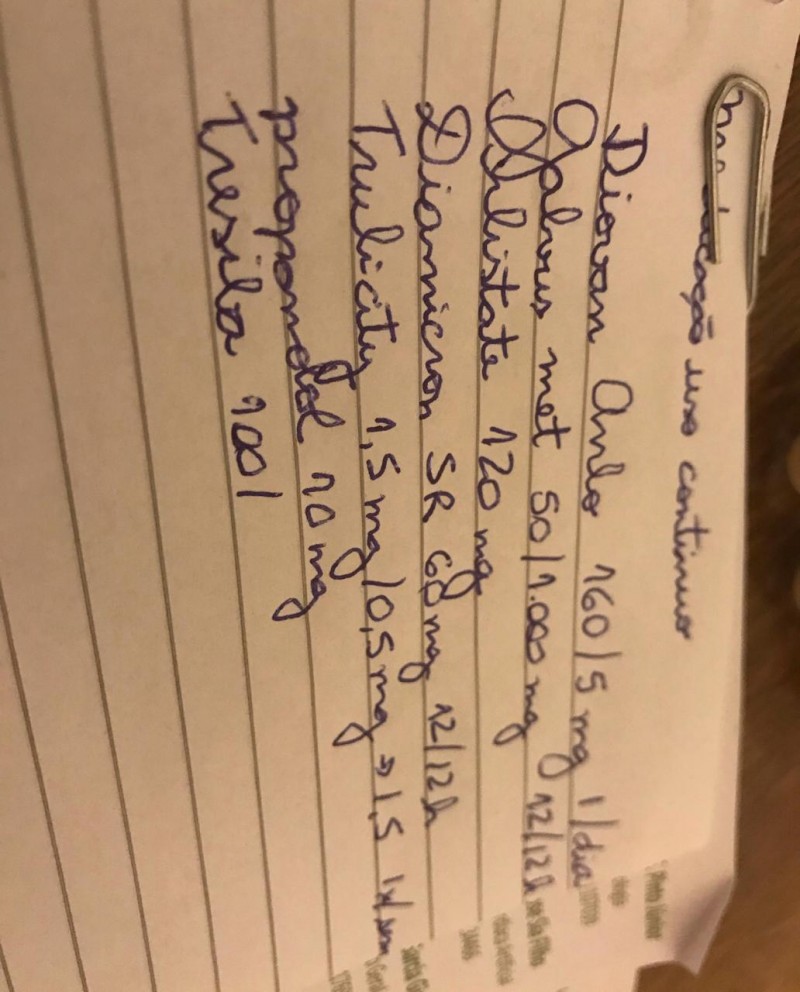 uso continuo
Diovan Anlo 160/5 mg 1/dia
Galvus met 50/1.000 mg 12/12h
120 mg
Diamicron SR 60mg 12/12h
Trulicity 1,5 mg/0,5mg → 1,5 1x/sem
propondol 10 mg
Tresiba 100